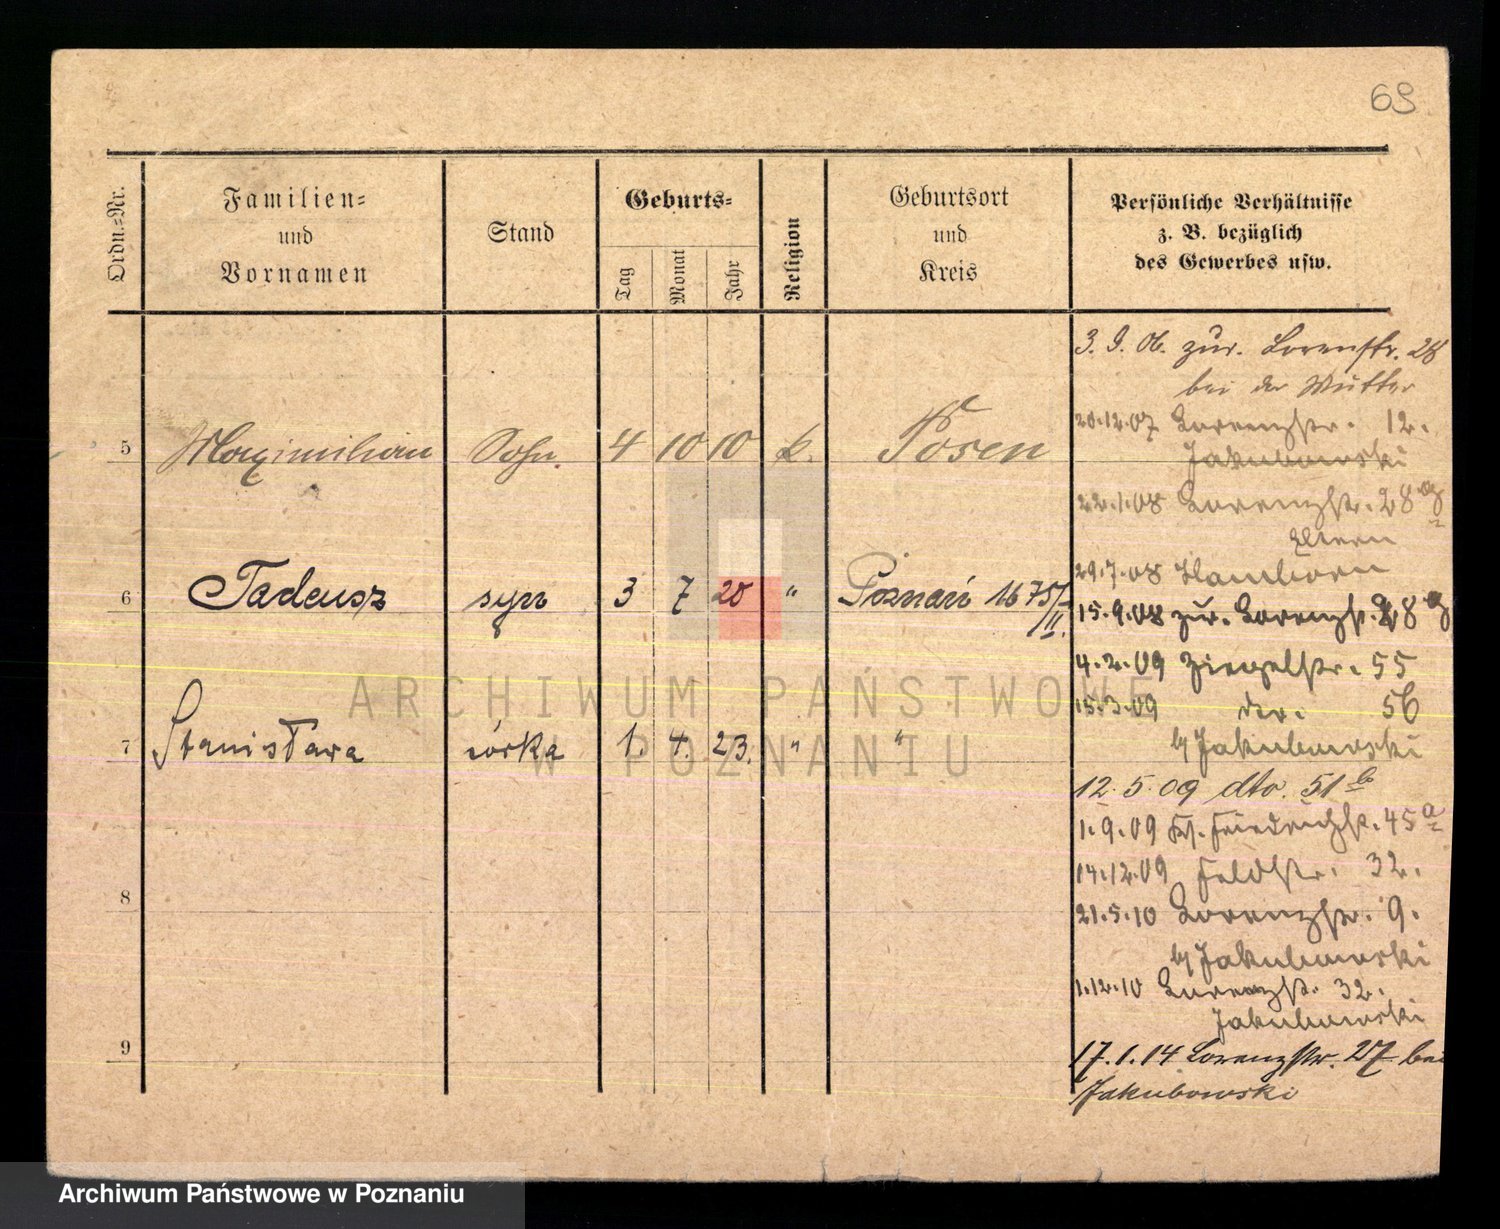 69
Ordn.-Nr.
Familien-
und
Vornamen
Stand
Geburts-
Tag
Monat
Jahr
Religion
Geburtsort
und
Kreis
Persönliche Verhältnisse
z. B. bezüglich
des Gewerbes usw.
5 Maximilian Sohn 4 10 10 k. Posen
6 Tadeusz syn 3 7 20 " Poznań 1675/II.
7 Stanisława córka 1. 4. 23. " "
8
9
3. 9. 06. zur. Lorenzstr. 28
bei der Mutter
20.12.07 Lorenzstr. 12.
Jakubowski
22.1.08 Lorenzstr. 28 a
Eltern
29.7.08 Hamborn
15.9.08 zur. Lorenzstr. 28 a
4.2.09 Ziegelstr. 55
15.3.09 56
b/ Jakubowski
12.5.09 dto. 51 b
1.9.09 Friedrichstr. 45 a
14.12.09 Feldstr. 32.
21.5.10 Lorenzstr. 9.
b/ Jakubowski
1.12.10 Lorenzstr. 32.
Jakubowski
17.1.14 Lorenzstr. 27 bei
Jakubowski
ARCHIWUM PAŃSTWOWE
W POZNANIU
Archiwum Państwowe w Poznaniu